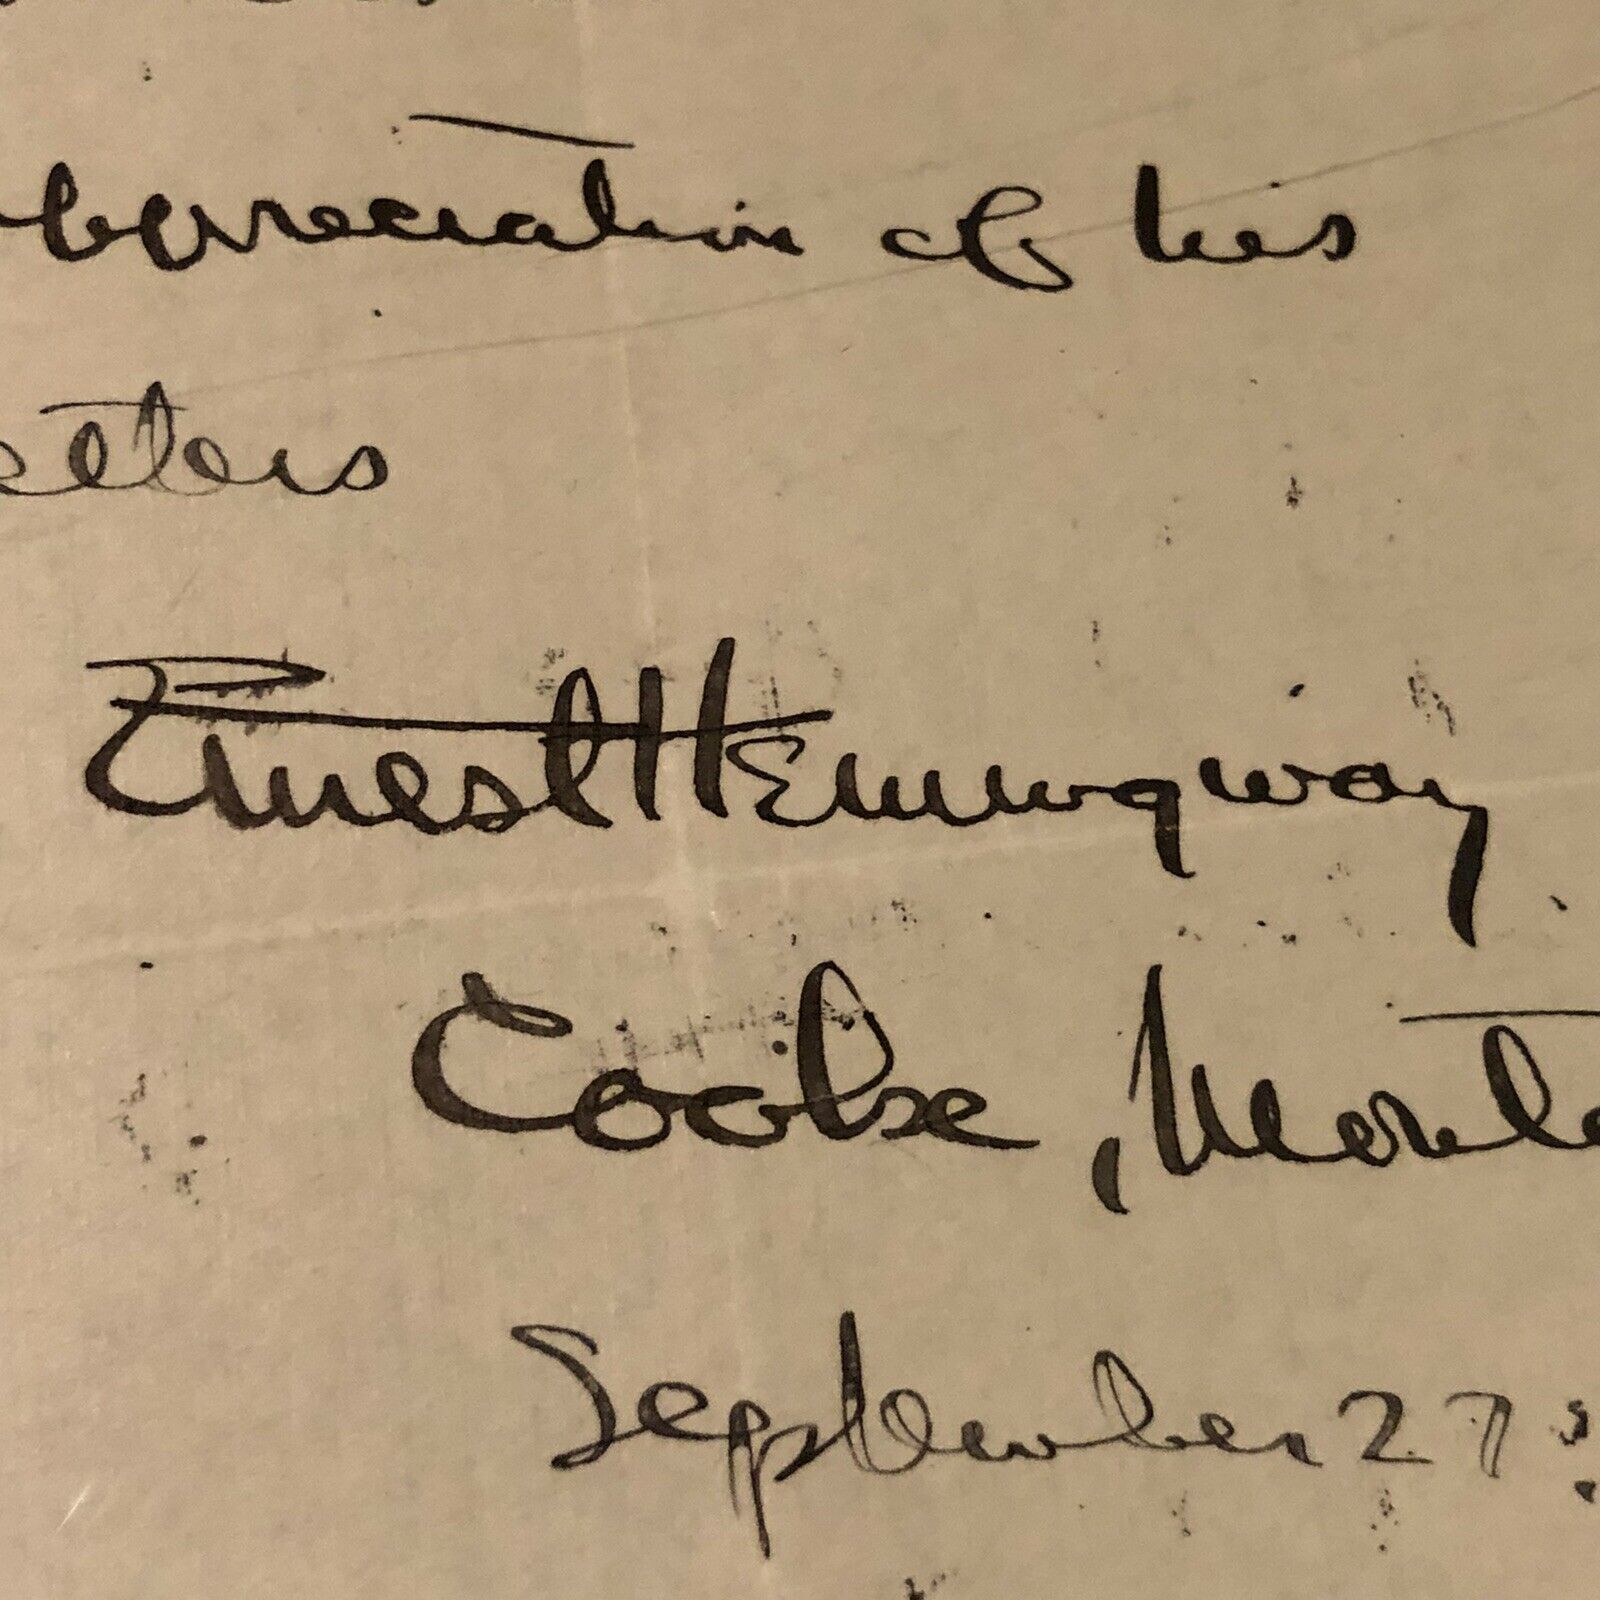 appreciation of his
letters
Ernest Hemingway
Cooke, Monta
September 27